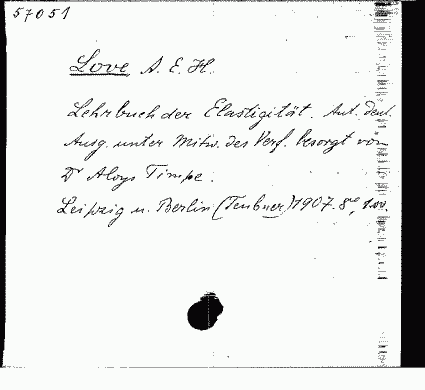 57051
Love A. E. H.
Lehrbuch der Elastizität. Aut. deut.
Ausg. unter Mitw. des Verf. besorgt von
Dr Aloys Timpe.
Leipzig u. Berlin (Teubner) 1907. 8°,